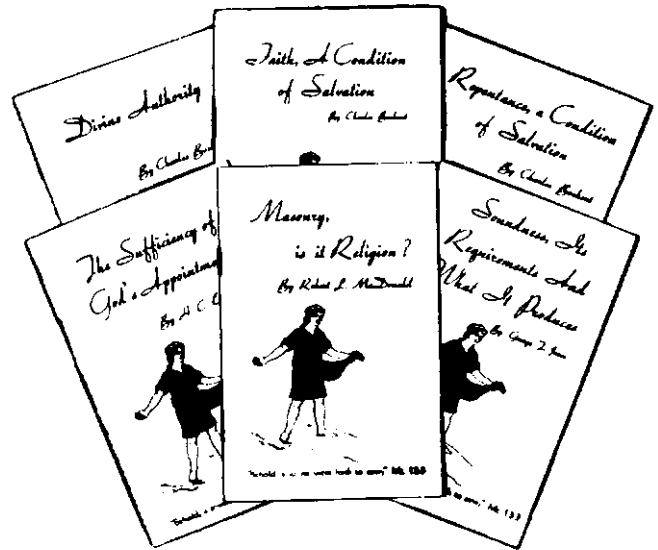 Divine Authority
By Charles
Faith, A Condition
of Salvation
By Charles
Repentance, a Condition
of Salvation
By Charles
The Sufficiency of
God's
By A. C.
Masonry,
is it Religion?
By Robert L. MacDonald
"Behold, a sower went forth to sow," Mt. 13:3
Soundness, Its
Requirements And
What It Produces
By George T. Jones
"Behold, a
to sow," Mt. 13:3